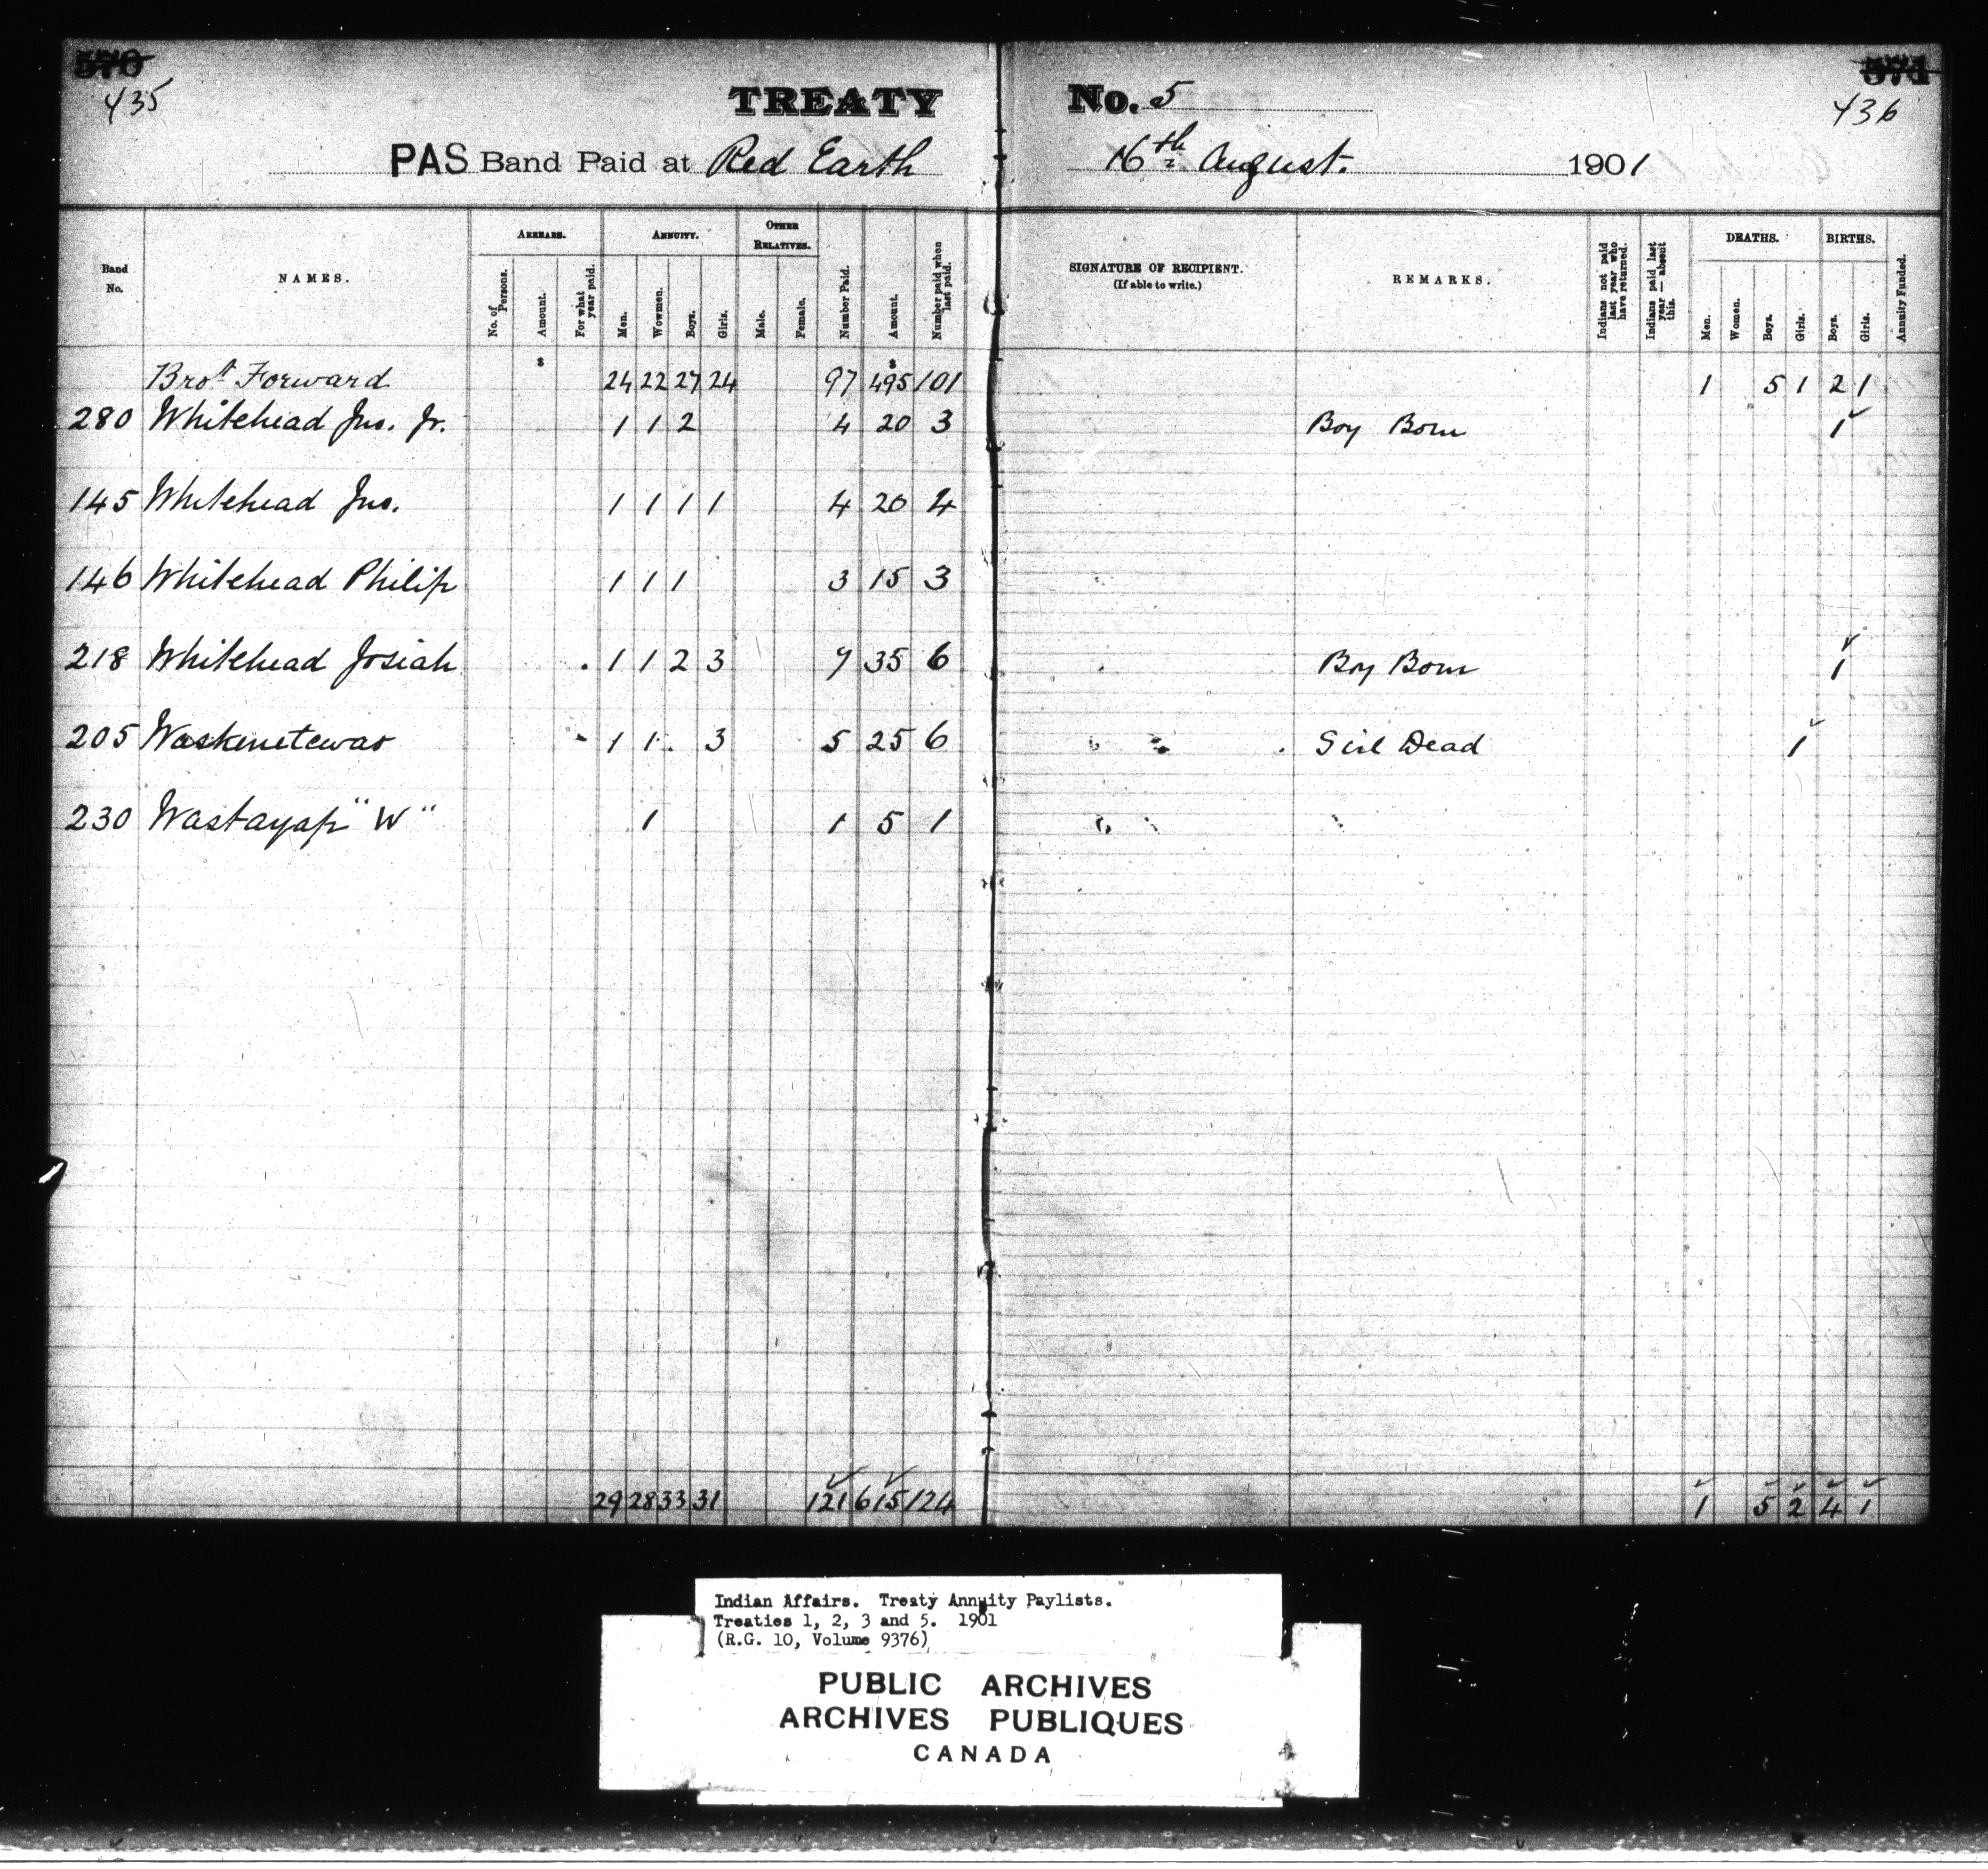 570 571
435 436
TREATY No. 5
PAS Band Paid at Red Earth 16th August. 1901
Band No. NAMES. ARREARS. No. of Persons. Amount. For what year paid. ANNUITY. Men. Wowmen. Boys. Girls. OTHER RELATIVES. Male. Female. Number Paid. Amount. Number paid when last paid. SIGNATURE OF RECIPIENT. (If able to write.) REMARKS. Indians not paid last year who have returned. Indians paid last year — absent this. DEATHS. Men. Women. Boys. Girls. BIRTHS. Boys. Girls. Annuity Funded.
$ $
Brot Forward 24 22 27 24 97 495 101 1 5 1 2 1
280 Whitehead Jno. Jr. 1 1 2 4 20 3 Boy Born 1
145 Whitehead Jno. 1 1 1 1 4 20 4
146 Whitehead Philip 1 1 1 3 15 3
218 Whitehead Josiah 1 1 2 3 7 35 6 Boy Born 1
205 Waskenetewao 1 1 3 5 25 6 Girl Dead 1
230 Wastayap "W" 1 1 5 1
29 28 33 31 121 615 124 1 5 2 4 1
Indian Affairs. Treaty Annuity Paylists.
Treaties 1, 2, 3 and 5. 1901
(R.G. 10, Volume 9376)
PUBLIC ARCHIVES
ARCHIVES PUBLIQUES
CANADA